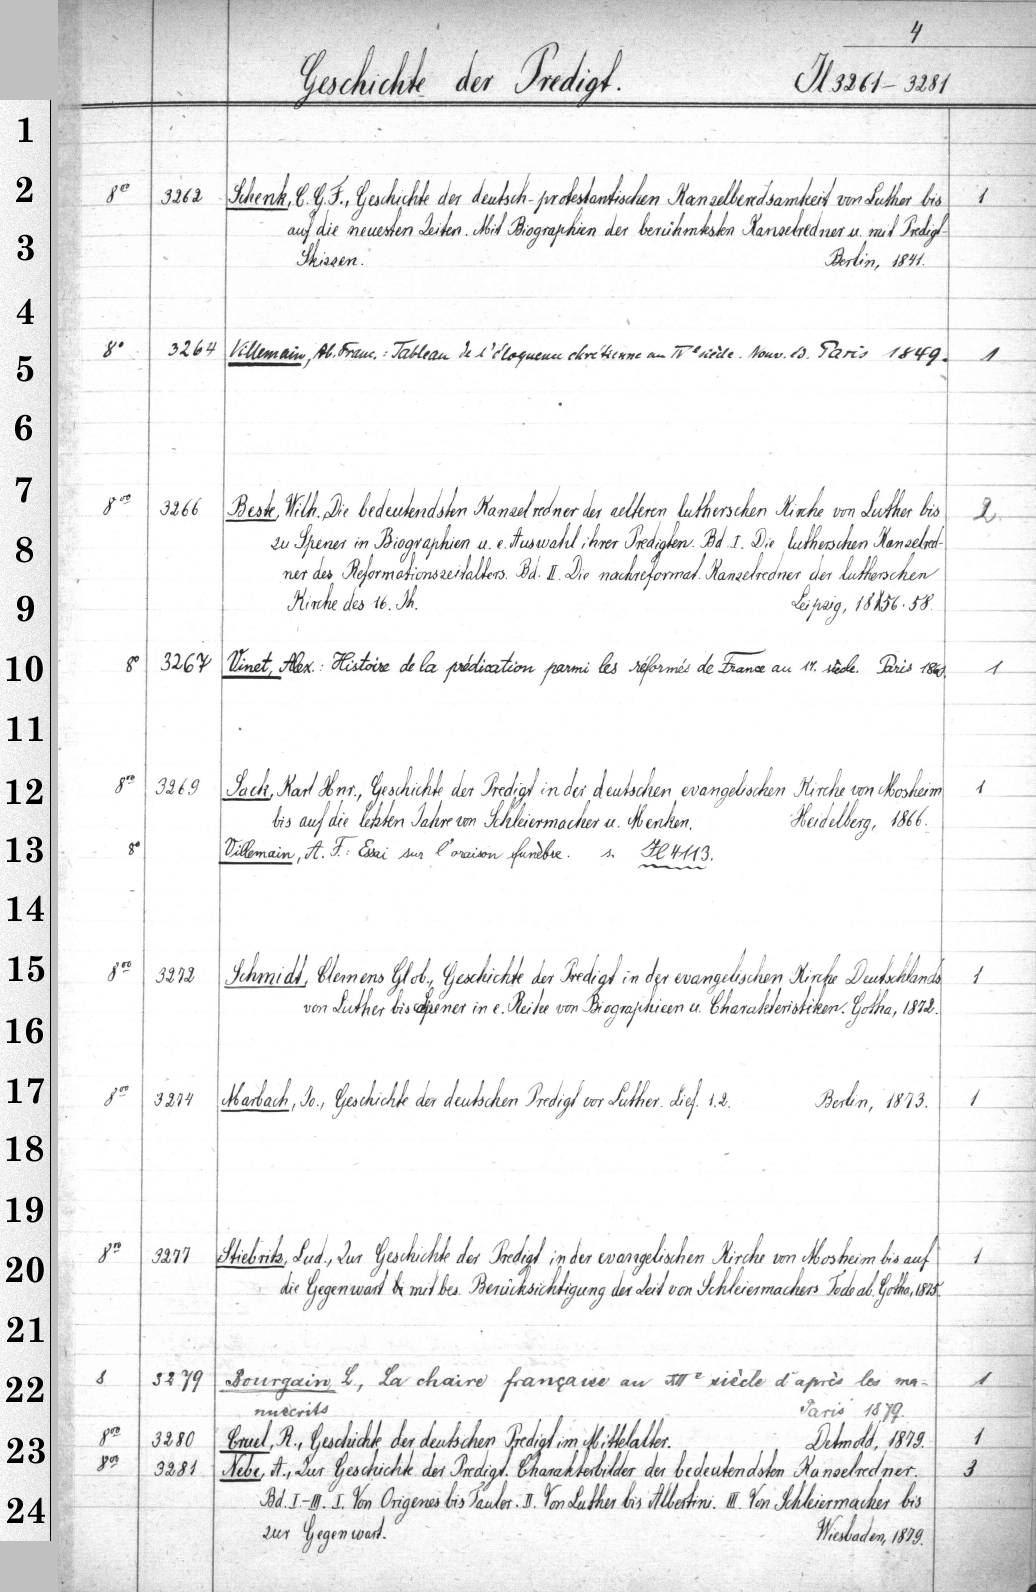 4
Geschichte der Predigt. Il 3261 – 3281
1
2
3
4
5
6
7
8
9
10
11
12
13
14
15
16
17
18
19
20
21
22
23
24
8vo 3262 Schenk, C. G. F., Geschichte der deutsch-protestantischen Kanzelberedsamkeit von Luther bis 1
auf die neuesten Zeiten. Mit Biographien der berühmtesten Kanzelredner u. mit Predigt-
Skizzen. Berlin, 1841.
8° 3264 Villemain, Ab. Franc.: Tableau de l'éloquence chrétienne au IVe siècle. Nouv. éd. Paris 1849. 1
8vo 3266 Beste, Wilh., Die bedeutendsten Kanzelredner der aelteren lutherschen Kirche von Luther bis 2
zu Spener in Biographien u. e. Auswahl ihrer Predigten. Bd. I. Die lutherschen Kanzelred-
ner des Reformationszeitalters. Bd. II. Die nachreformat. Kanzelredner der lutherschen
Kirche des 16. Jh. Leipzig, 1856. 58.
8° 3267 Vinet, Alex.: Histoire de la prédication parmi les réformés de France au 17. siècle. Paris 1
8vo 3269 Sack, Karl Hnr., Geschichte der Predigt in der deutschen evangelischen Kirche von Mosheim 1
bis auf die letzten Jahre von Schleiermacher u. Menken. Heidelberg, 1866.
8° Villemain, A. F.: Essai sur l'oraison funèbre. s. Il 4113.
8vo 3272 Schmidt, Clemens Glob., Geschichte der Predigt in der evangelischen Kirche Deutschlands 1
von Luther bis Spener in e. Reihe von Biographieen u. Charakteristiken. Gotha, 1872.
8vo 3274 Marbach, Jo., Geschichte der deutschen Predigt vor Luther. Lief. 1.2. Berlin, 1873. 1
8vo 3277 Stiebritz, Lud., Zur Geschichte der Predigt in der evangelischen Kirche von Mosheim bis auf 1
die Gegenwart mit bes. Berücksichtigung der Zeit von Schleiermachers Tode ab. Gotha, 1875.
8 3279 Bourgain, L., La chaire française au XIIe siècle d'après les ma- 1
nuscrits Paris 1879.
8vo 3280 Cruel, R., Geschichte der deutschen Predigt im Mittelalter. Detmold, 1879. 1
8vo 3281 Nebe, A., Zur Geschichte der Predigt. Charakterbilder der bedeutendsten Kanzelredner. 3
Bd. I–III. I. Von Origenes bis Tauler. II. Von Luther bis Albertini. III. Von Schleiermacher bis
zur Gegenwart. Wiesbaden, 1879.